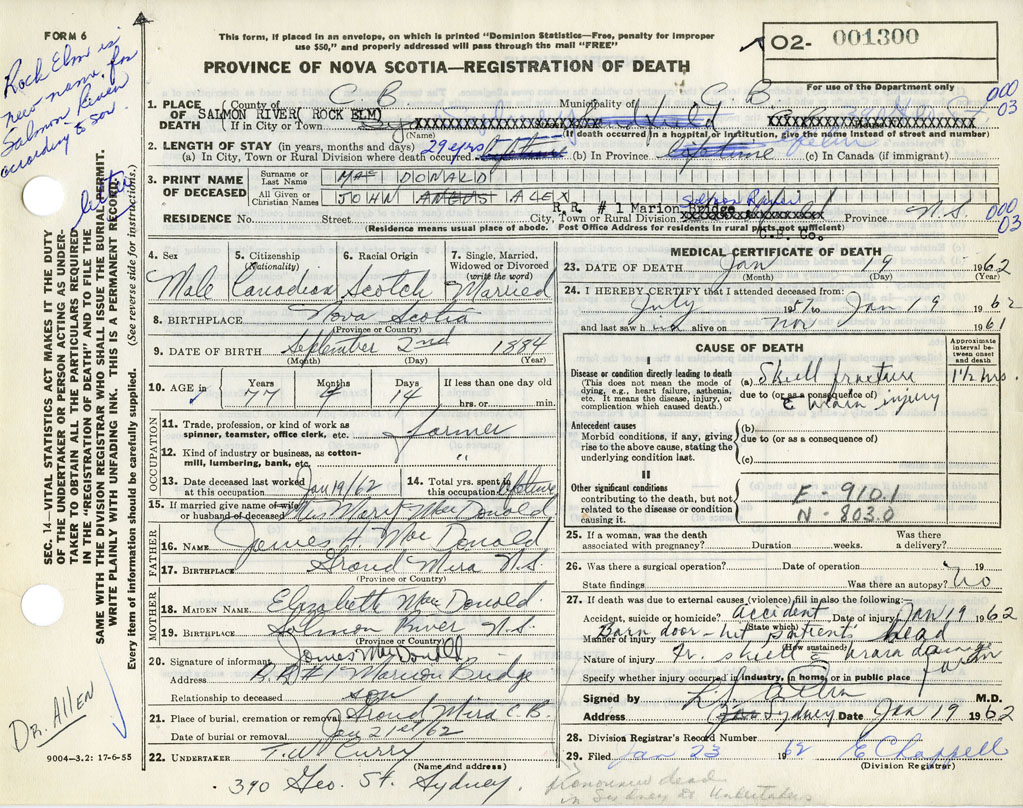 FORM 6
This form, if placed in an envelope, on which is printed "Dominion Statistics—Free, penalty for improper
use $50," and properly addressed will pass through the mail "FREE"
02- 001300
PROVINCE OF NOVA SCOTIA—REGISTRATION OF DEATH
For use of the Department only
Rock Elm is
new name for
Salmon River
according to son.
1. PLACE OF DEATH
County of C. B. Municipality of C. B.
SALMON RIVER( ROCK ELM)
If in City or Town
(Name) (If death occurred in a hospital or institution, give the name instead of street and number)
000
03
2. LENGTH OF STAY (in years, months and days)
(a) In City, Town or Rural Division where death occurred 29 yrs (b) In Province lifetime (c) In Canada (if immigrant)
3. PRINT NAME OF DECEASED
Surname or Last Name MAC DONALD
All Given or Christian Names JOHN ANGUS ALEX
R. R. # 1 Marion Bridge Salmon River
RESIDENCE No. Street City, Town or Rural Division C.B. Co. Province N.S.
(Residence means usual place of abode. Post Office Address for residents in rural parts not sufficient)
000
03
4. Sex Male
5. Citizenship (Nationality) Canadian
6. Racial Origin Scotch
7. Single, Married, Widowed or Divorced (write the word) Married
8. BIRTHPLACE Nova Scotia
(Province or Country)
9. DATE OF BIRTH September 2nd 1884
(Month) (Day) (Year)
10. AGE in Years 77 Months 4 Days 14 If less than one day old hrs. or min.
OCCUPATION
11. Trade, profession, or kind of work as spinner, teamster, office clerk, etc. farmer
12. Kind of industry or business, as cotton-mill, lumbering, bank, etc. "
13. Date deceased last worked at this occupation Jan 19/62
14. Total yrs. spent in this occupation lifetime
15. If married give name of wife or husband of deceased Mrs Mary MacDonald
FATHER
16. NAME James H. MacDonald
17. BIRTHPLACE Grand Mira N.S.
(Province or Country)
MOTHER
18. MAIDEN NAME Elizabeth MacDonald
19. BIRTHPLACE Salmon River N.S.
(Province or Country)
20. Signature of informant James MacDonald
Address R.R #1 Marion Bridge
Relationship to deceased son
21. Place of burial, cremation or removal Grand Mira C.B.
Date of burial or removal Jan 21st/62
22. UNDERTAKER T.W. Curry
(Name and address)
390 Geo. St. Sydney
MEDICAL CERTIFICATE OF DEATH
23. DATE OF DEATH Jan 19 1962
(Month) (Day) (Year)
24. I HEREBY CERTIFY that I attended deceased from:
July 1957 to Jan 19 1962
and last saw him alive on Nov 1961
CAUSE OF DEATH
Approximate interval between onset and death
I
Disease or condition directly leading to death
(This does not mean the mode of dying, e.g., heart failure, asthenia, etc. It means the disease, injury, or complication which caused death.)
(a) Skull fracture 1½ hrs.
due to (or as a consequence of)
c̄ brain injury
Antecedent causes
Morbid conditions, if any, giving rise to the above cause, stating the underlying condition last.
(b)
due to (or as a consequence of)
(c)
II
Other significant conditions
contributing to the death, but not related to the disease or condition causing it.
E - 910.1
N - 803.0
25. If a woman, was the death associated with pregnancy? Duration weeks. Was there a delivery?
26. Was there a surgical operation? Date of operation 19
State findings Was there an autopsy? No
27. If death was due to external causes (violence) fill in also the following:—
Accident, suicide or homicide? Accident Date of injury Jan 19 1962
(State which)
Manner of injury Barn door - hit patient's head
(How sustained)
Nature of injury Fr. skull - brain damage
Specify whether injury occurred in industry, in home, or in public place farm
Signed by M.D.
Address Sydney Date Jan 19 1962
28. Division Registrar's Record Number
29. Filed Jan 23 1962 E Chappell
(Division Registrar)
Pronounced dead
in Sydney by Undertakers
SEC. 14—VITAL STATISTICS ACT MAKES IT THE DUTY
OF THE UNDERTAKER OR PERSON ACTING AS UNDER-
TAKER TO OBTAIN ALL THE PARTICULARS REQUIRED
IN THE "REGISTRATION OF DEATH" AND TO FILE THE
SAME WITH THE DIVISION REGISTRAR WHO SHALL ISSUE THE BURIAL PERMIT.
WRITE PLAINLY WITH UNFADING INK. THIS IS A PERMANENT RECORD.
Every item of information should be carefully supplied. (See reverse side for instructions.)
DR. ALLEN
9004—3.2: 17-6-55